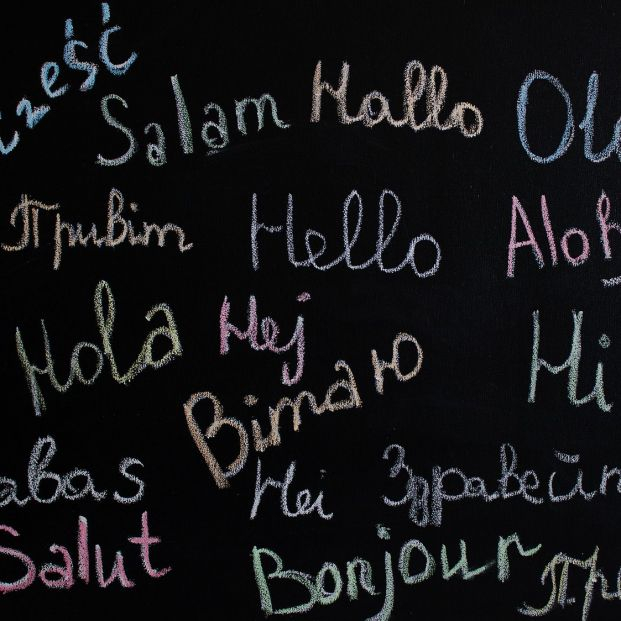 ześć
Salam Hallo Ola
Привіт Hello Aloh
Hola Hej Hi
Вітаю
abas Hei Здравейт
Salut Bonjour При